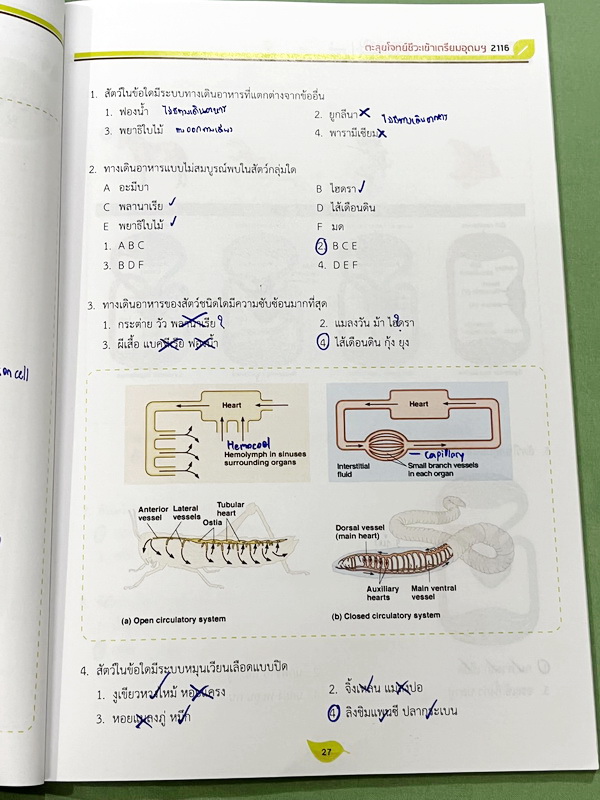 ตะลุยโจทย์ชีวะเข้าเตรียมอุดมฯ 2116
1. สัตว์ในข้อใดมีระบบทางเดินอาหารที่แตกต่างจากข้ออื่น
1. ฟองน้ำ ไม่มีทางเดินอาหาร
2. ยูกลีนา ไม่มีทางเดินอาหาร
3. พยาธิใบไม้
4. พารามีเซียม
2. ทางเดินอาหารแบบไม่สมบูรณ์พบในสัตว์กลุ่มใด
A อะมีบา
B ไฮดรา
C พลานาเรีย
D ไส้เดือนดิน
E พยาธิใบไม้
F มด
1. A B C
2. B C E
3. B D F
4. D E F
3. ทางเดินอาหารของสัตว์ชนิดใดมีความซับซ้อนมากที่สุด
1. กระต่าย วัว พลานาเรีย
2. แมลงวัน ม้า ไฮดรา
3. ผีเสื้อ แบคทีเรีย ฟองน้ำ
4. ไส้เดือนดิน กุ้ง ยุง
on cell
Heart
Hemocoel
Hemolymph in sinuses
surrounding organs
Heart
capillary
Interstitial
fluid
Small branch vessels
in each organ
Anterior
vessel
Lateral
vessels
Tubular
heart
Ostia
(a) Open circulatory system
Dorsal vessel
(main heart)
Auxiliary
hearts
Main ventral
vessel
(b) Closed circulatory system
4. สัตว์ในข้อใดมีระบบหมุนเวียนเลือดแบบปิด
1. งูเขียวหางไหม้ หอยแครง
2. จิ้งเหลน แมงปอ
3. หอยแมลงภู่ หมึก
4. ลิงชิมแพนซี ปลากระเบน
27